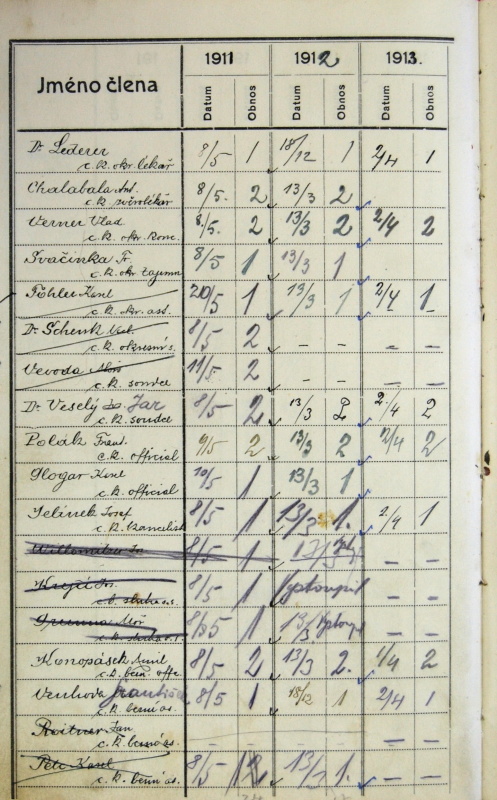 1911 1912 1913.
Jméno člena Datum Obnos Datum Obnos Datum Obnos
Dr. Lederer 8/5 1 18/12 1 2/4 1
c. k. okr. lékař
Chalabala Ant. 8/5. 2 13/3 2
c. k. zvěrolékař
Verner Vlad 8/5. 2 13/3 2 2/4 2
c. k. okr. kom.
Svačinka Fr. 8/5 1 13/3 1
c. k. okr. tajemn
Föhler Karel /5 1 13/3 1 2/4 1
c. k. okr. ast.
Dr. Schenk 8/5 2 – – – –
c. k. okresní s.
Vevoda Alois 11/5 2 – – – –
c. k. soudce
Dr. Veselý Jar 8/5 2 13/3 2 2/4 2
c. k. soudce
Polák Frant. 9/5 2 13/3 2 2/4 2
c. k. official
Glogar Karel 10/5 1 13/3 1
c. k. official
Jelínek Josef 8/5 1 13/3 1. 2/4 1
c. k. kancelist
8/5 1 – –
Krejčí 8/5 1 Vystoupil – –
8/5 1 13/3 – –
Konopásek Emil 8/5 2 13/3 2. 2
c. k. bern. offic.
františ 8/5 1 18/12 1 2/4 1
c. k. berní as.
Jan – –
c. k. berní as.
Petr Karel 8/5 13/3 1. – –
c. k. berní as.